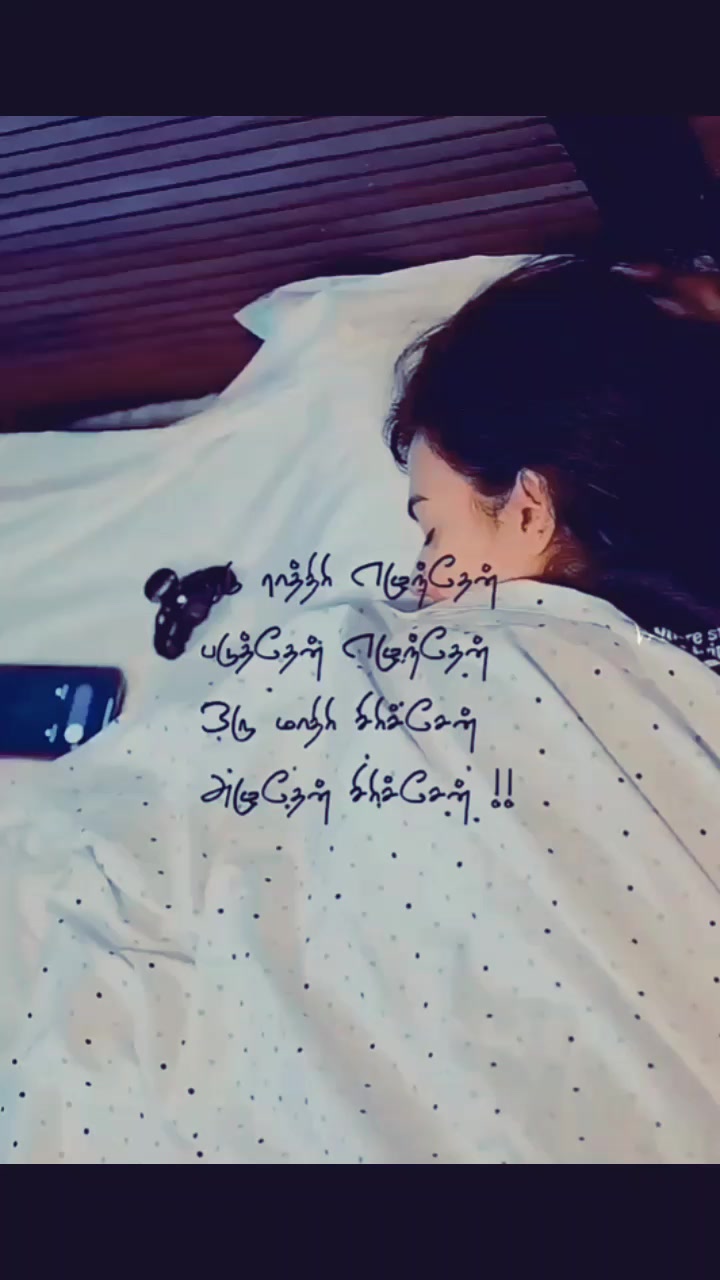 ராத்திரி எழுந்தேன்
படுத்தேன் எழுந்தேன்
ஒரு மாதிரி சிரிச்சேன்
அழுதேன் சிரிச்சேன் !!